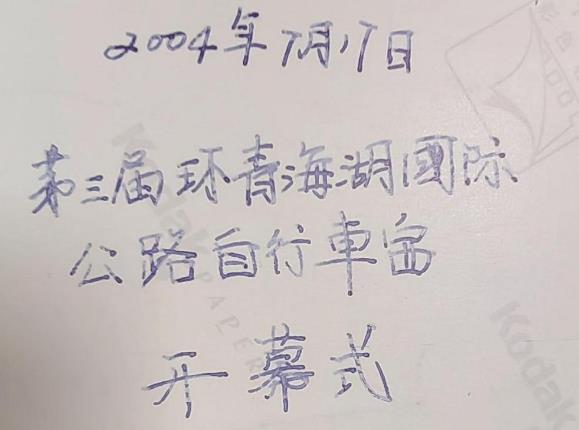 2004年7月17日
第三届环青海湖國际
公路自行車宙
开幕式
Kodak
PAPER
Kodak